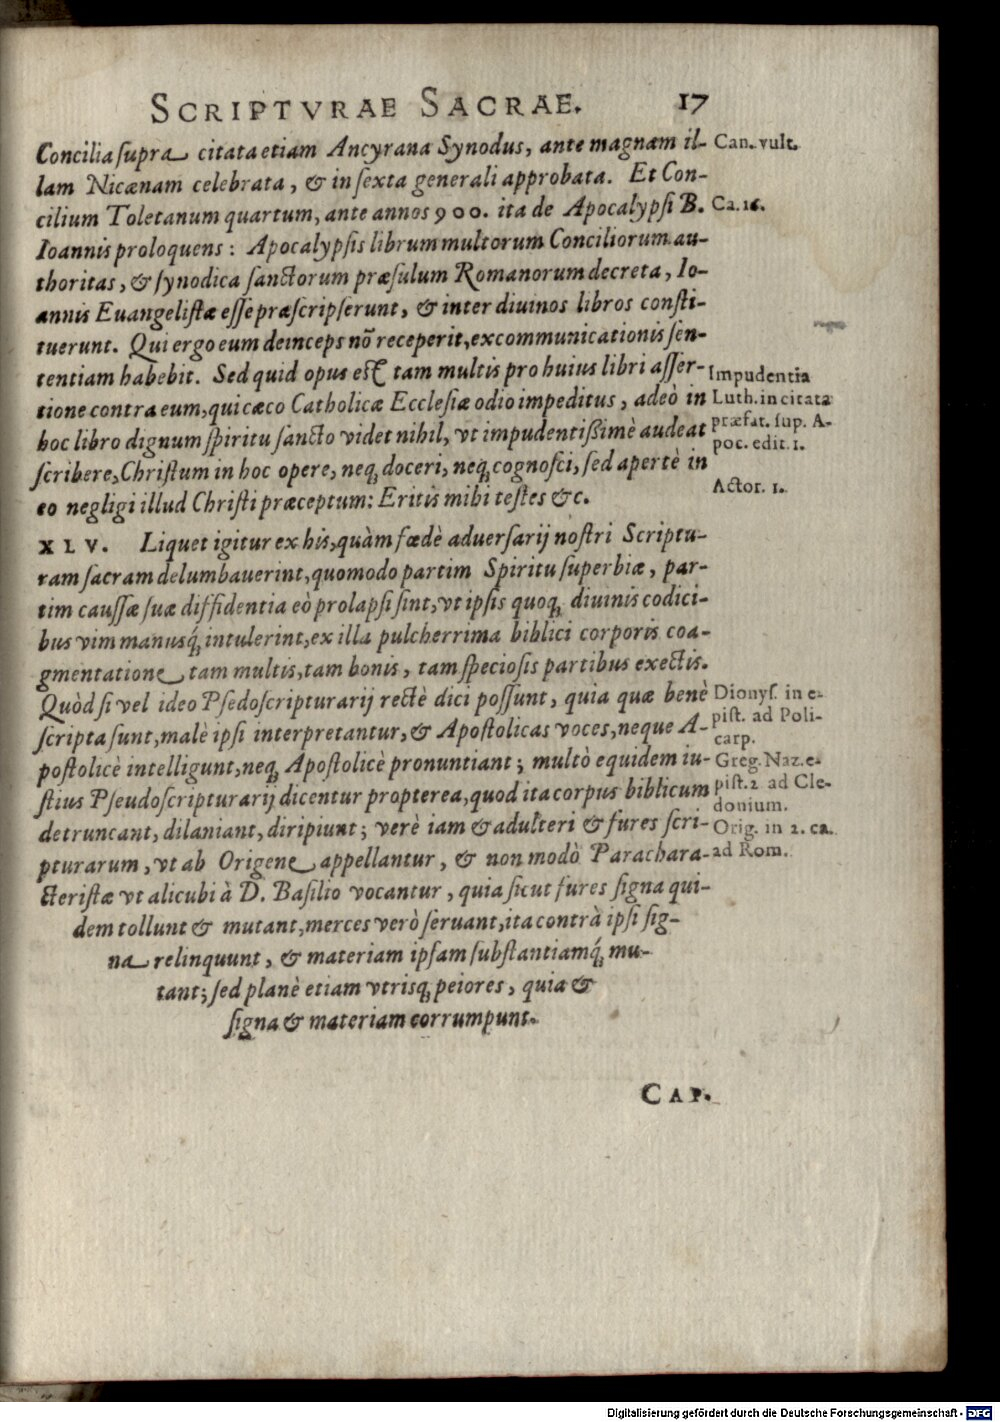 SCRIPTVRAE SACRAE. 17
Concilia supra citata etiam Ancyrana Synodus, ante magnam il-
lam Nicænam celebrata, & in sexta generali approbata. Et Con-
cilium Toletanum quartum, ante annos 900. ita de Apocalypsi B.
Ioannis proloquens: Apocalypsis librum multorum Conciliorum au-
thoritas, & synodica sanctorum præsulum Romanorum decreta, Io-
annis Euangelistæ esse præscripserunt, & inter diuinos libros consti-
tuerunt. Qui ergo eum deinceps nõ receperit, excommunicationis sen-
tentiam habebit. Sed quid opus est tam multis pro huius libri asser-
tione contra eum, qui cæco Catholicæ Ecclesiæ odio impeditus, adeò in
hoc libro dignum spiritu sancto videt nihil, vt impudentißimè audeat
scribere, Christum in hoc opere, neq; doceri, neq; cognosci, sed apertè in
eo negligi illud Christi præceptum: Eritis mihi testes &c.
XLV. Liquet igitur ex his, quàm fœdè aduersarij nostri Scriptu-
ram sacram delumbauerint, quomodo partim Spiritu superbiæ, par-
tim caussæ suæ diffidentia eò prolapsi sint, vt ipsis quoq; diuinis codici-
bus vim manusq́; intulerint, ex illa pulcherrima biblici corporis coa-
gmentatione tam multis, tam bonis, tam speciosis partibus exectis.
Quòd si vel ideo Psedoscripturarij rectè dici possunt, quia quæ benè
scripta sunt, malè ipsi interpretantur, & Apostolicas voces, neque A-
postolicè intelligunt, neq; Apostolicè pronuntiant; multò equidem iu-
stius Pseudoscripturarij dicentur propterea, quod ita corpus biblicum
detruncant, dilaniant, diripiunt; verè iam & adulteri & fures scri-
pturarum, vt ab Origene appellantur, & non modò Parachara-
cteristæ vt alicubi à D. Basilio vocantur, quia sicut fures signa qui-
dem tollunt & mutant, merces verò seruant, ita contrà ipsi sig-
na relinquunt, & materiam ipsam substantiamq́; mu-
tant; sed planè etiam vtrisq; peiores, quia &
signa & materiam corrumpunt.
CAP.
Can. vult.
Ca. 16.
Impudentia
Luth. in citata
præfat. sup. A-
poc. edit. 1.
Actor. 1.
Dionys. in e-
pist. ad Poli-
carp.
Greg. Naz. e-
pist. 2 ad Cle-
donium.
Orig. in 2. ca.
ad Rom.
Digitalisierung gefördert durch die Deutsche Forschungsgemeinschaft - DFG